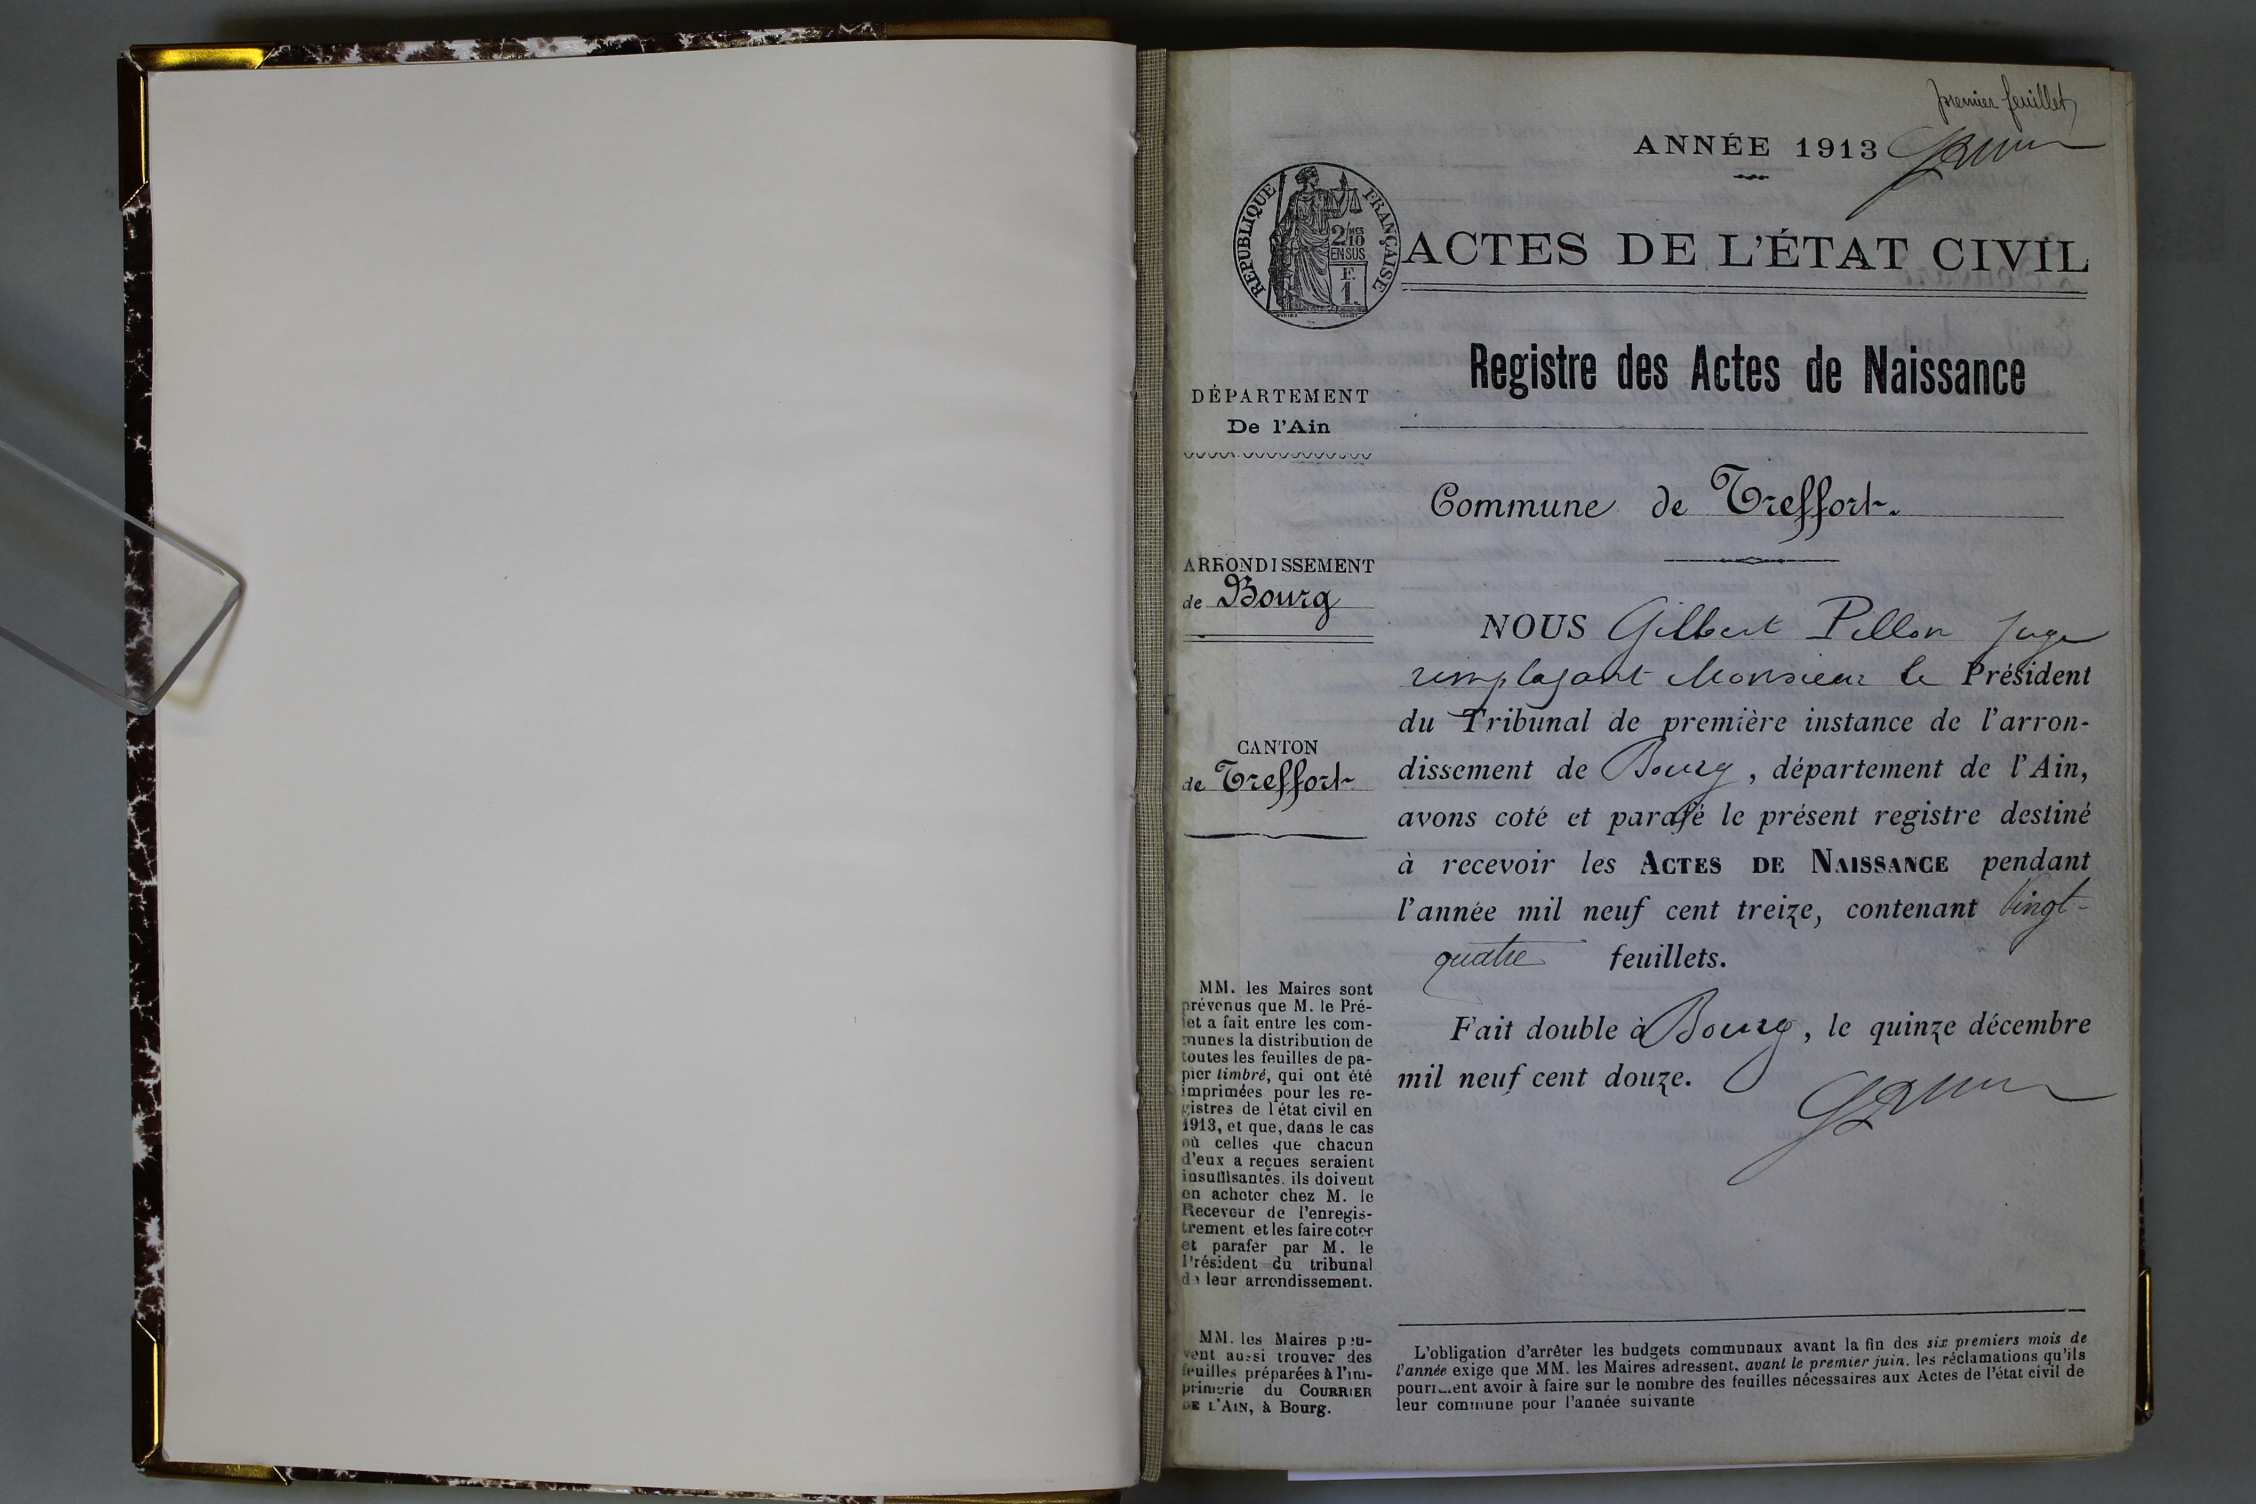 premier feuillet
ANNÉE 1913
RÉPUBLIQUE FRANÇAISE
2/10 MES
EN SUS
F.
1.
ACTES DE L'ÉTAT CIVIL
Registre des Actes de Naissance
DÉPARTEMENT
De l'Ain
Commune de Treffort.
ARRONDISSEMENT
de Bourg
CANTON
de Treffort
NOUS Gilbert Pillon Juge
remplaçant Monsieur le Président
du Tribunal de première instance de l'arron-
dissement de Bourg, département de l'Ain,
avons coté et parafé le présent registre destiné
à recevoir les ACTES DE NAISSANCE pendant
l'année mil neuf cent treize, contenant vingt-
quatre feuillets.
Fait double à Bourg, le quinze décembre
mil neuf cent douze.
MM. les Maires sont
prévenus que M. le Pré-
fet a fait entre les com-
munes la distribution de
toutes les feuilles de pa-
pier timbré, qui ont été
imprimées pour les re-
gistres de l'état civil en
1913, et que, dans le cas
où celles que chacun
d'eux a reçues seraient
insuffisantes, ils doivent
en acheter chez M. le
Receveur de l'enregis-
trement et les faire coter
et parafer par M. le
Président du tribunal
de leur arrondissement.
MM. les Maires peu-
vent aussi trouver des
feuilles préparées à l'im-
primerie du COURRIER
DE L'AIN, à Bourg.
L'obligation d'arrêter les budgets communaux avant la fin des six premiers mois de
l'année exige que MM. les Maires adressent, avant le premier juin, les réclamations qu'ils
pourraient avoir à faire sur le nombre des feuilles nécessaires aux Actes de l'état civil de
leur commune pour l'année suivante